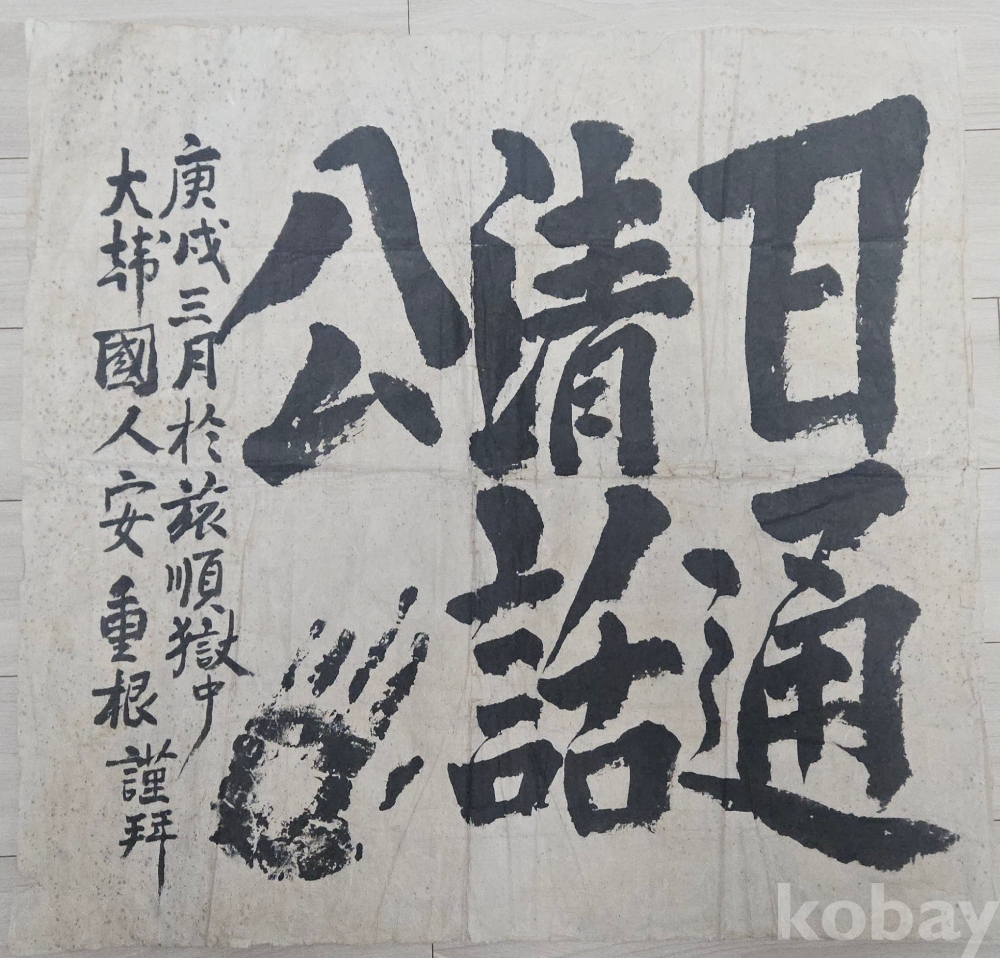 日通
清話
公
庚戌三月於旅順獄中
大韓國人安重根 謹拜
kobay